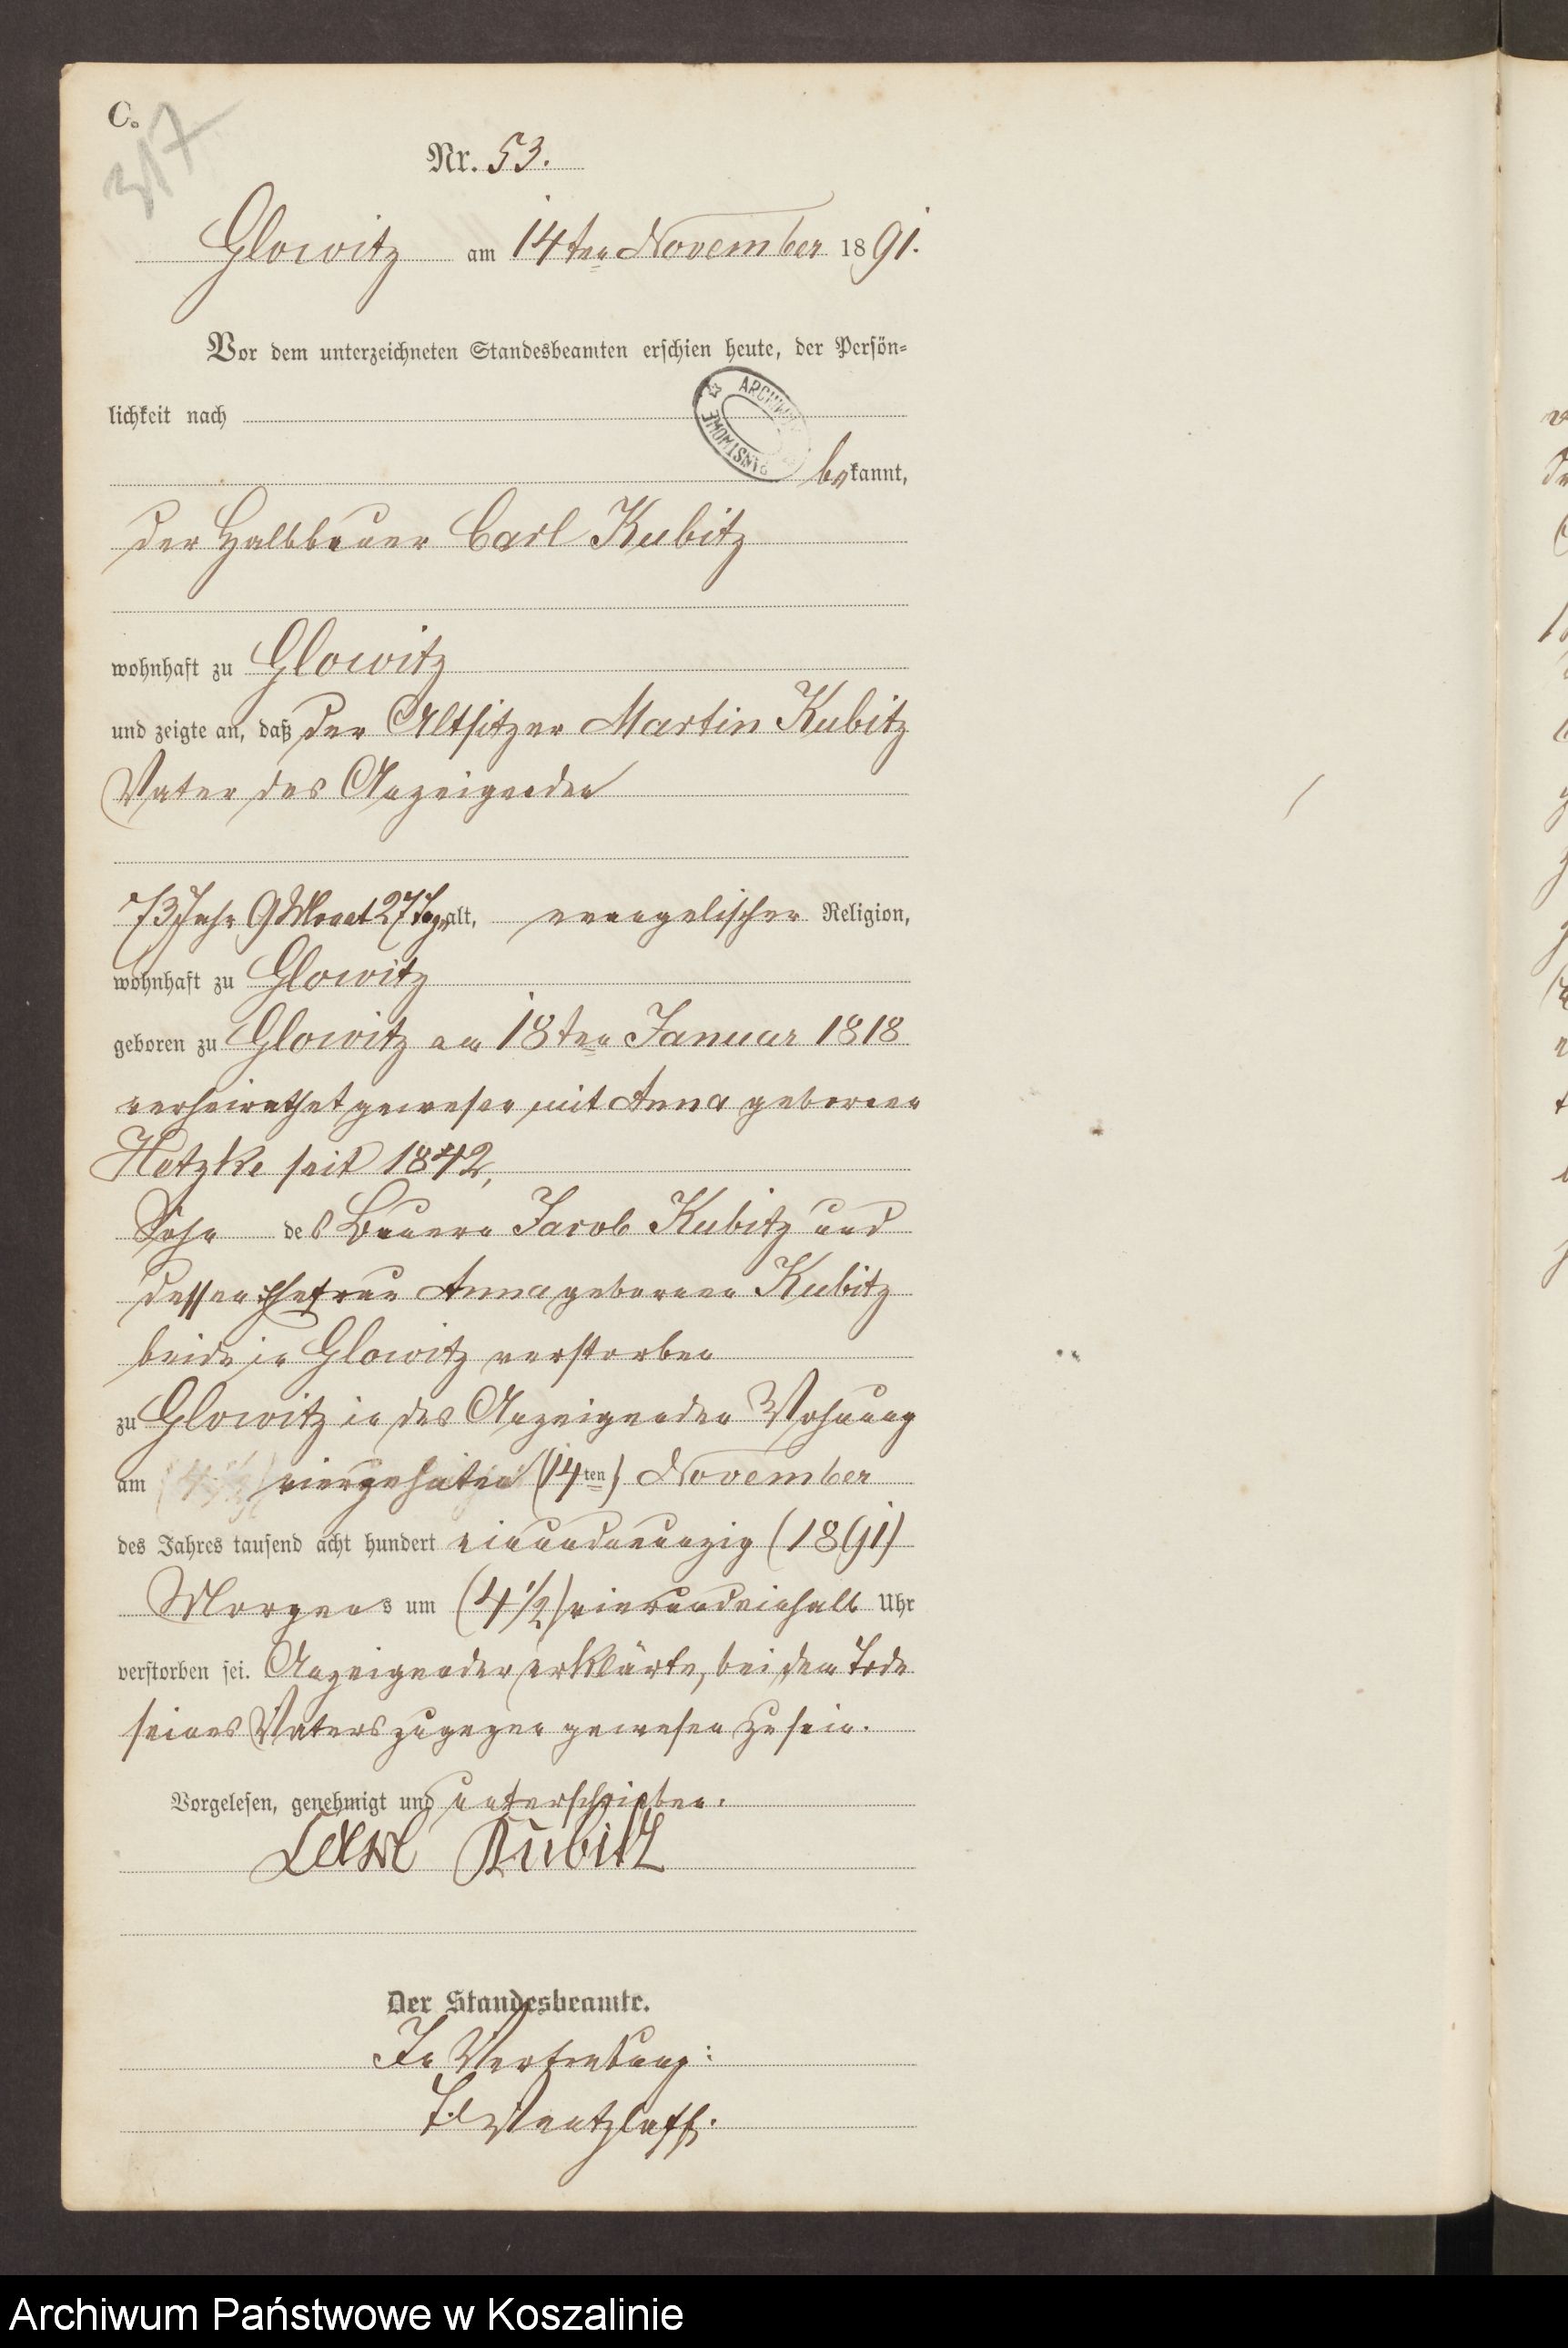 C.
317
Nr. 53.
Glowitz am 14ten November 1891.
Vor dem unterzeichneten Standesbeamten erschien heute, der Persön-
lichkeit nach
ARCHIWUM PAŃSTWOWE
bekannt,
der Halbbauer Carl Kubitz
wohnhaft zu Glowitz
und zeigte an, daß der Altsitzer Martin Kubitz
Vater des Anzeigenden
73 Jahr 9 Monat 27 Tage alt, evangelischer Religion,
wohnhaft zu Glowitz
geboren zu Glowitz am 18ten Januar 1818
verheirathet gewesen mit Anna geborenen
Hetzke seit 1842,
Sohn des Bauern Jacob Kubitz und
dessen Ehefrau Anna geborenen Kubitz
beide in Glowitz verstorben
zu Glowitz in des Anzeigenden Wohnung
am vierzehnten (14ten) November
des Jahres tausend acht hundert einundneunzig (1891)
Morgens um (4 1/2) vierundeinhalb Uhr
verstorben sei. Anzeigender erklärte, bei dem Tode
seines Vaters zugegen gewesen zu sein.
Vorgelesen, genehmigt und unterschrieben.
Carl Kubitz
Der Standesbeamte.
In Vertretung:
Wentzlaff.
Archiwum Państwowe w Koszalinie